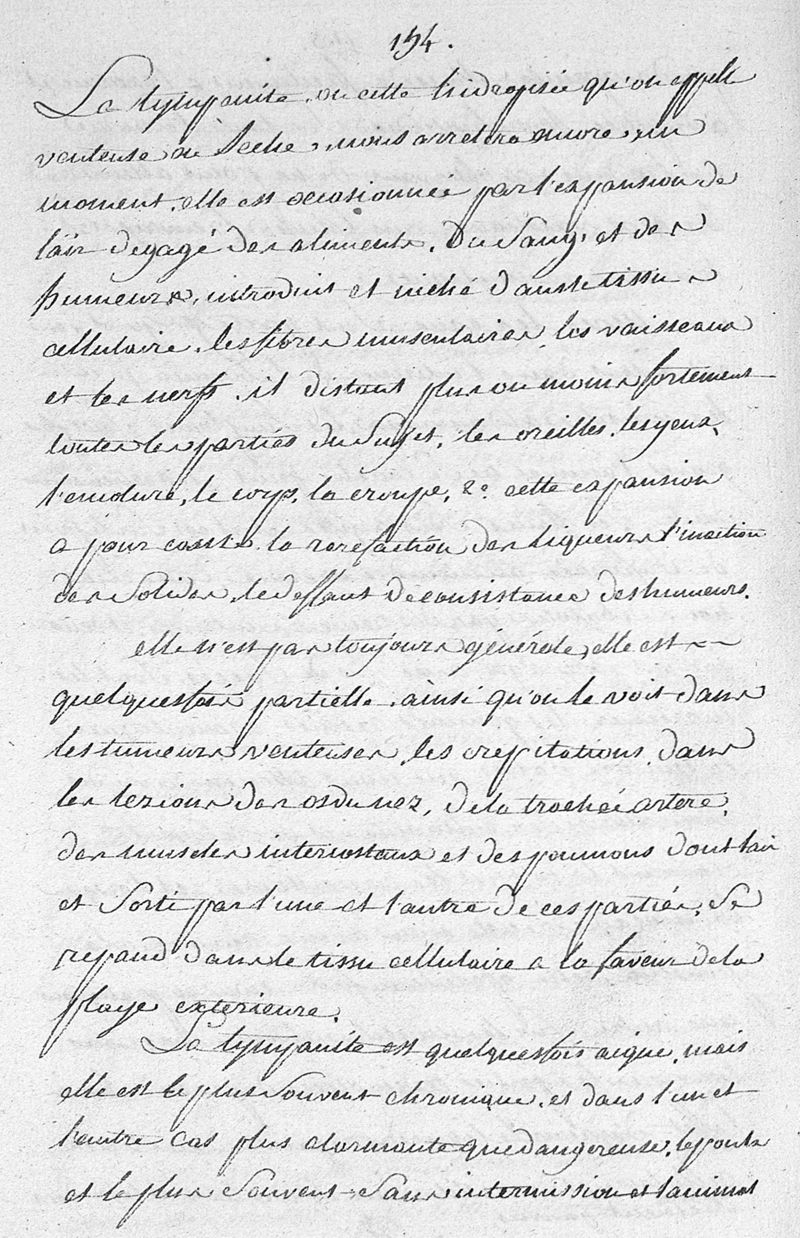 154.
La tympanite, ou cette hidropisie qu'on appelle
venteuse ou seche, nous arretera encore un
moment, elle est occasionnée par l'expansion de
l'air degagé des aliments, du sang, et des
humeurs, introduit et niché dans le tissu
cellulaire, les fibres musculaires les vaisseaux
et les nerfs. il distant plus ou moins fortement
toutes les parties du sujet, les oreilles, les yeux,
l'encolure, le corp, la croupe, &c. cette expansion
a pour cause la rarefaction des liqueurs l'inaction
des solides, le deffaut de consistance des humeurs.
elle n'est pas toujours générale, elle est
quelquesfois partielle, ainsi qu'on le voit dans
les tumeurs venteuses, les crepitations, dans
les lezions des os du nez, de la trachée artere,
des muscles intercostaux et des poumons dont l'air
et sorti par l'une et l'autre de ces parties, se
repand dans le tissu cellulaire a la faveur de la
playe exterieure.
La tympanite est quelquesfois aigue, mais
elle est le plus souvent chronique, et dans l'un et
l'autre cas plus alarmante que dangereuse, le pouls
et le plus souvent sans intermission et l'animal